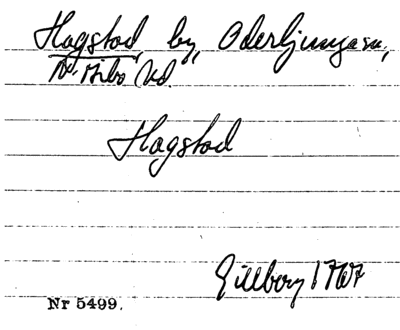 Hagstad, by, Oderljunga sn,
N. Åsbo hd.
Hagstad
Gillberg 1767
Nr 5499.